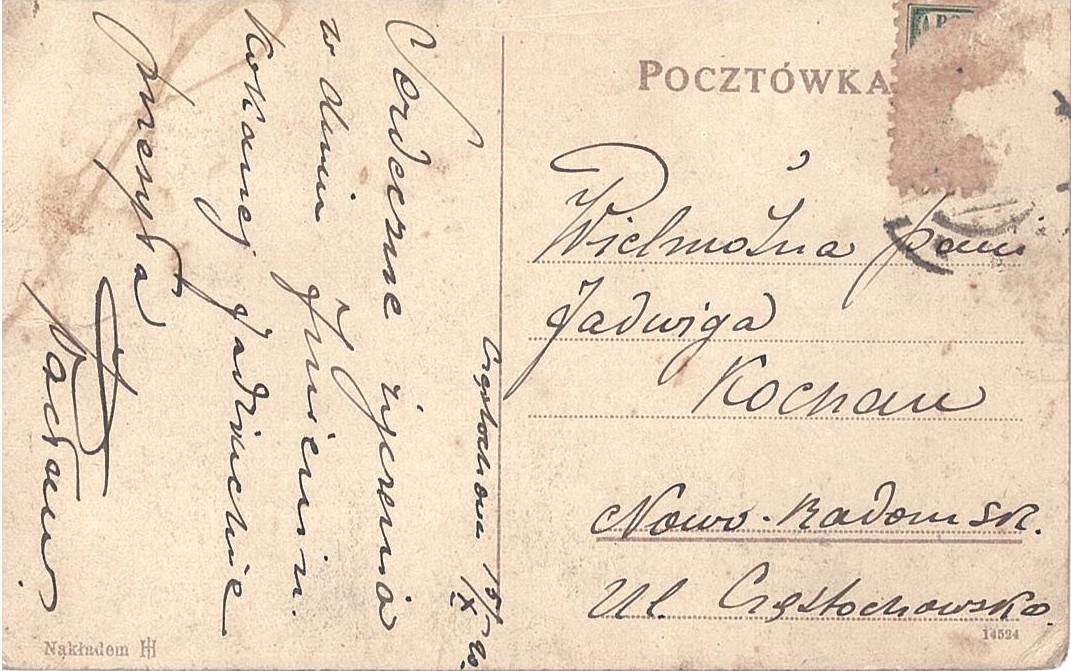 POCZTÓWKA
Wielmożna Pani
Jadwiga
Kochan
Nowo-Radomsk.
Ul. Częstochowska
14524
Częstochowa 15/X
Serdeczne życzenia
w dniu Imienin.
Kochanej Jadziuchnie
przesyła
Wacław
Nakładem